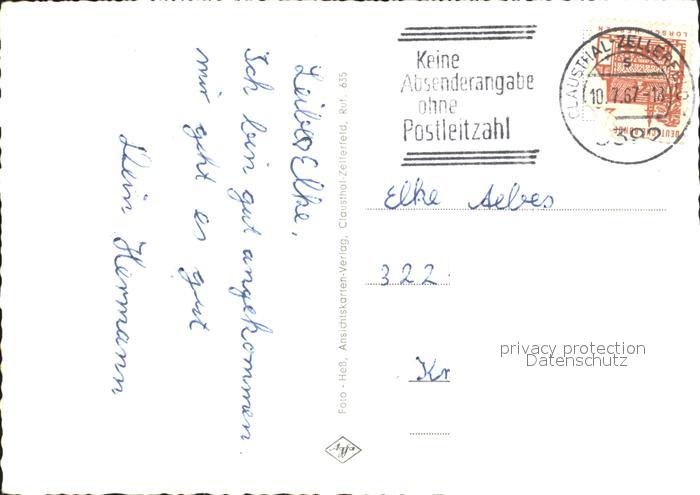 Leiber Elke,
Ich bin gut angekommen.
mir geht es gut
Dein Hermann
Foto - Heß, Ansichtskarten-Verlag, Clausthal-Zellerfeld, Ruf. 635
Keine
Absenderangabe
ohne
Postleitzahl
CLAUSTHAL-ZELLERFELD
10.7.67-18
3392
DEUTSCHE BUNDESPOST
LORSCH HESSEN
Elke Aelves
322
Kr
privacy protection
Datenschutz